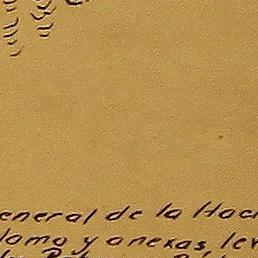 eneral de la Hac
lomo y anexas, lev